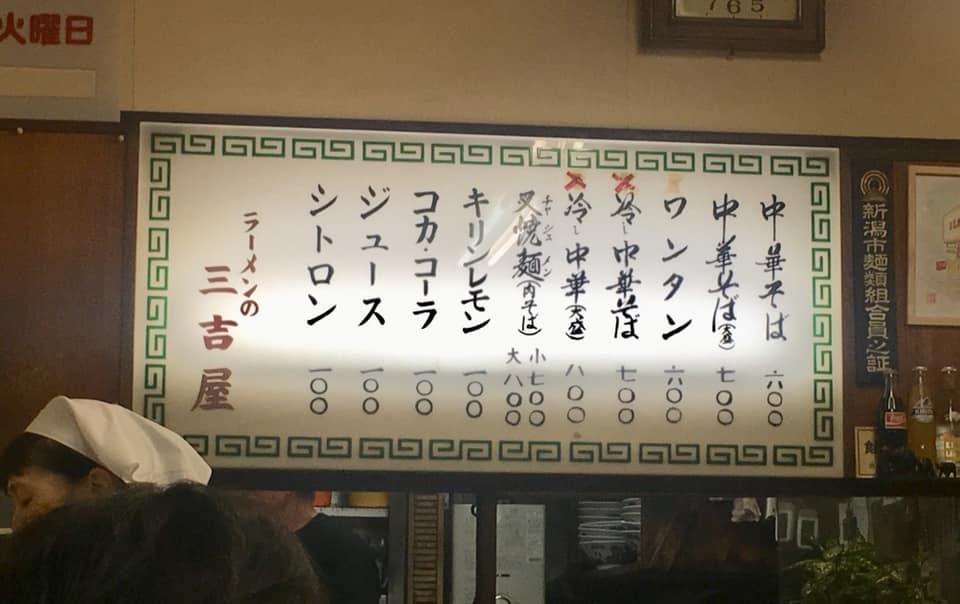 火曜日
765
中華そば 六〇〇
中華そば(大盛) 七〇〇
ワンタン 六〇〇
冷し中華そば 七〇〇
冷し中華(大盛) 八〇〇
叉焼麺(肉そば) 小七〇〇
チャーシューメン 大八〇〇
キリンレモン 一〇〇
コカ・コーラ 一〇〇
ジュース 一〇〇
シトロン 一〇〇
ラーメンの
三吉屋
新潟市麺類組合員之証